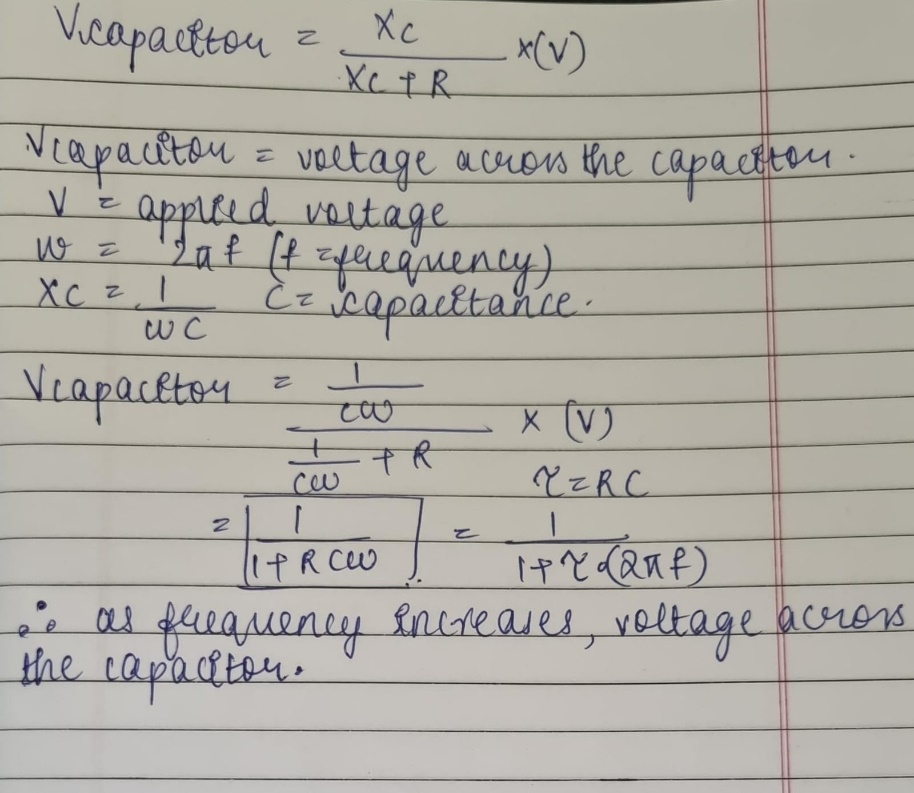 Vcapacitor = Xc / Xc + R x(V)
Vcapacitor = voltage across the capacitor.
V = applied voltage
w = 2πf (f = frequency)
Xc = 1 / ωC C = capacitance.
Vcapacitor = 1/cω / 1/cω + R x (V)
τ = RC
= 1 / 1 + RCω = 1 / 1 + τ (2πf)
∴ as frequency increases, voltage across
the capacitor.